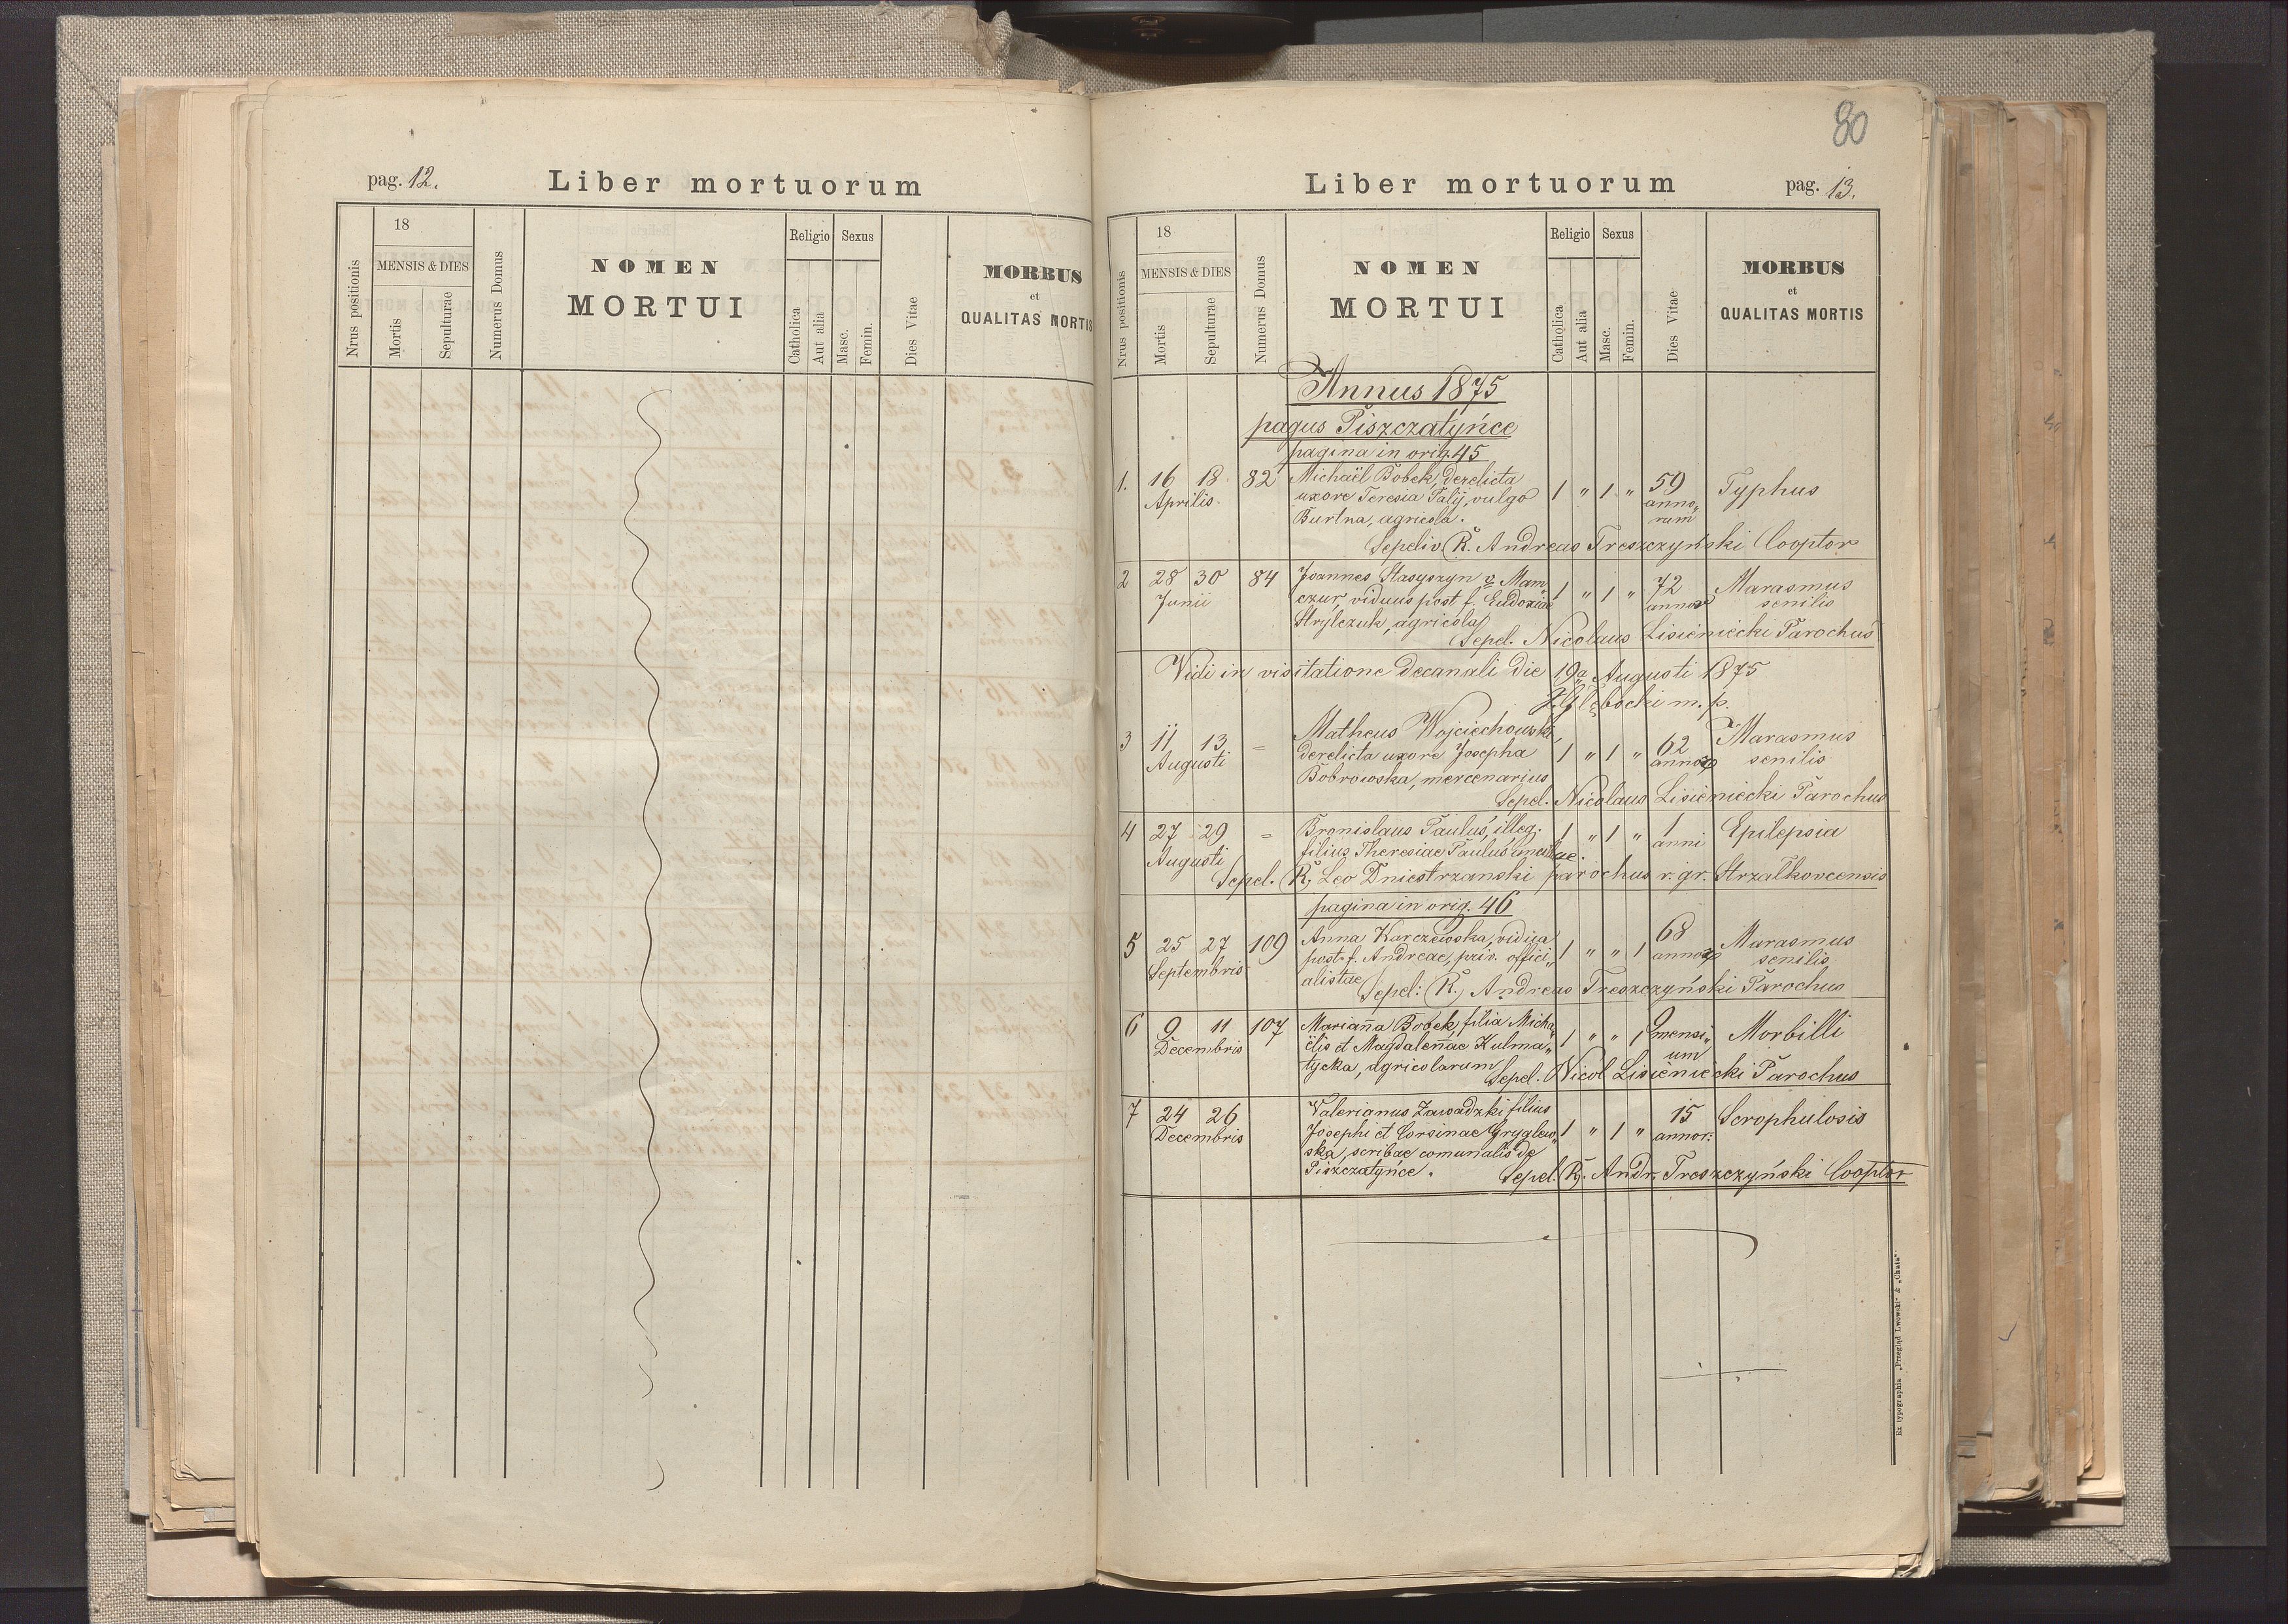 80
pag. 12.
Liber mortuorum
Nrus positionis
18
MENSIS & DIES
Mortis
Sepulturae
Numerus Domus
NOMEN
MORTUI
Religio
Catholica
Aut alia
Sexus
Masc.
Femin.
Dies Vitae
MORBUS
et
QUALITAS MORTIS
Liber mortuorum
pag. 13.
Nrus positionis
18
MENSIS & DIES
Mortis
Sepulturae
Numerus Domus
NOMEN
MORTUI
Religio
Catholica
Aut alia
Sexus
Masc.
Femin.
Dies Vitae
MORBUS
et
QUALITAS MORTIS
Annus 1875
pagus Piszczatyńce
pagina in orig. 45
1. 16 18 82 Michaël Bobek, derelicta 1 " 1 " 59 Typhus
Aprilis uxore Teresia Palij, vulgo anno„
Burtna, agricola. rum
Sepeliv. R. Andreas Treszczyński Cooptor
2 28 30 84 Joannes Stasyszyn v. Mam„ 1 " 1 " 72 Marasmus
Junii czur, viduus post f. Eudoxiae annor senilis
Strylczuk, agricola
Sepel. Nicolaus Lisieniecki Parochus
Vidi in visitatione decanali die 19a Augusti 1875
Głębocki m. p.
3 11 13 = Matheus Wojciechowski, 1 " 1 " 62 Marasmus
Augusti derelicta uxore Josepha annor senilis
Bobrowska, mercenarius
Sepel. Nicolaus Lisieniecki Parochus
4 27 29 = Bronislaus Pauluś, illeg. 1 " 1 " 1 Epilepsia
Augusti filius Theresiae Pauluś ancillae. anni
Sepel. R. Leo Dniestrzanski parochus r. gr. Strzalkovcensis
pagina in orig. 46
5 25 27 109 Anna Karczewska, vidua 1 " " 1 68 Marasmus
Septembris post f. Andreae, priv. offici„ annor senilis
alistae
Sepel: R. Andreas Treszczyński Parochus
6 9 11 107 Marianna Bobek, filia Micha„ 1 " " 1 9 mensi„ Morbilli
Decembris ëlis et Magdalennae Kulma„ um
tycka, agricolarum
Sepel. Nicol Lisieniecki Parochus
7 24 26 Valerianus Zawadzki filius 1 " 1 " 15 Scrophulosis
Decembris Josephi et Corsinae Gryglew„ annor:
ska, scribae comunalis de
Piszczatyńce.
Sepel. R. Andr. Treszczyński Cooptor
Ex typographia „Przegląd Lwowski" & „Chata".